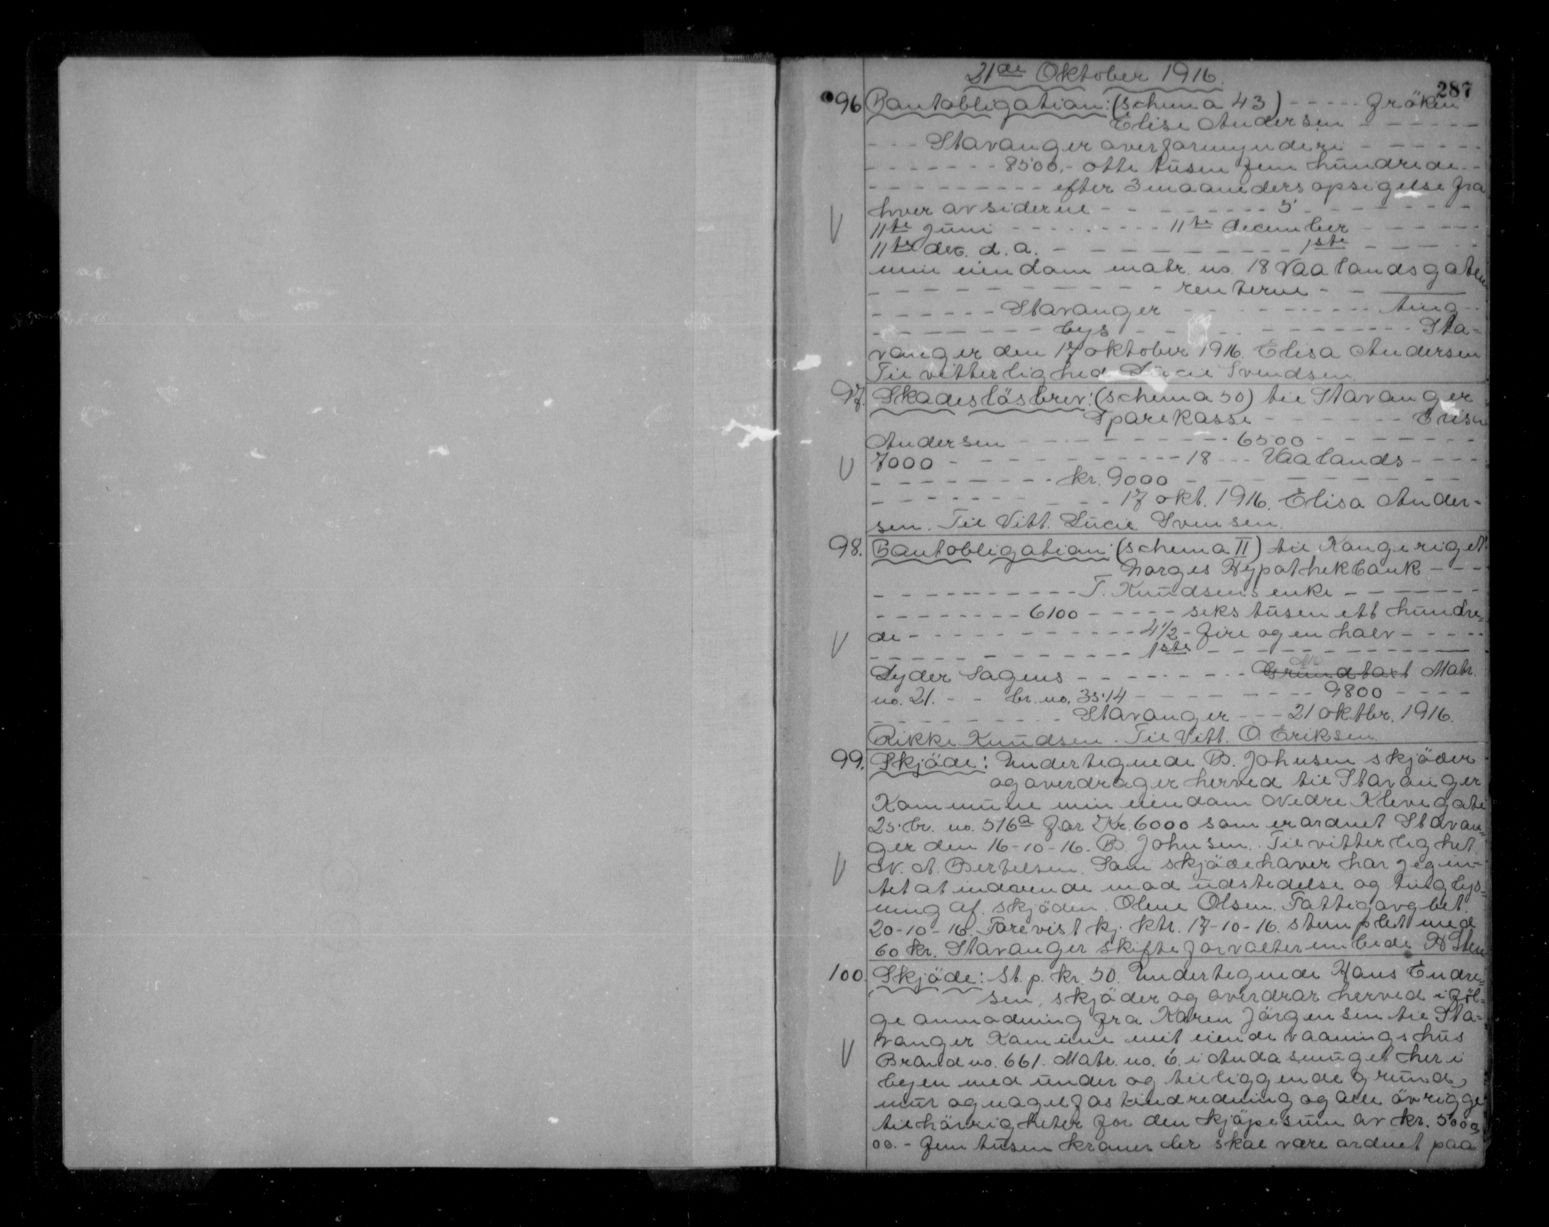 21de Oktober 1916.
287
96 Pantobligation: (schema 43) - - - - - Fröken
Elise Andersen - - - - - - -
- - - Stavanger overformynderi - - - - - -
- - - - - - - 8500.- otte tusen fem hundrede - -
- - - - - - - - - - efter 3 maaneders opsigelse fra
hver av siderne - - - - - - - - - 5 - - - - - - - -
11te juni - - - - - - - - - 11te december - - - - - -
11te dec. d. a. - - - - - - - - - - - 1ste - - - - - -
min eiendom matr. no. 18 Vaalandsgaten
- - - - - - - - - - - - - renterne - -
- - - - - - Stavanger - - - - - - - - - ting
- - - - - - - - bys - - - - - - - - - - - - Sta-
vanger den 17 oktober 1916. Elisa Andersen
Til vitterlighed Lucie Svendsen
97. Skadeslösbrev: (schema 50) til Stavanger
Sparekasse - - - - - - - Elise
Andersen - - - - - - - - - - 6500 - - - - - - -
7000 - - - - - - - - - - - 18 - - - Vaalands - - - -
- - - - - - - - - kr. 9000 - - - - - - - - - -
- - - - - - - - - - - 17 okt. 1916. Elisa Ander-
sen. Til Vitt. Lucie Svensen.
98. Pantobligation: (schema II) til Kongeriget
Norges Hypothekbank - - -
- - - - - - - - - - T. Knudsens enke - - - - - - -
- - - - - - - - 6100 - - - - - seks tusen ett hundre-
de - - - - - - - - - - - 4 1/2 - fire og en halv - - - -
- - - - - - - - - - - - - 1ste - - - - - - - - - -
Lyder Sagens - - - - - - - - - Grundtaxt Matr.
no. 21. - - br. no. 3514 - - - - - - - - - 9800 - - - -
- - - - - - - - - - Stavanger - - - 21 oktbr. 1916.
Rikke Knudsen. Til Vitt. O Eriksen
99. Skjöde: Undertegnede B. Johnsen skjöder
og overdrager herved til Stavanger
Kommune min eiendom övedre Klevegate
25 br. no. 516a for Kr. 6000 som er ordnet Stavan-
ger den 16-10-16. B. Johnsen. Til vitterlighet
A. Bertelsen. Som skjödehaver har jeg in-
tet at indvende mod udstedelse og tinglys-
ning af skjöden. Olene Olsen. Fattigavg. bet.
20-10-16. Forevist kj. ktr. 17-10-16. stemplet med
60 kr. Stavanger skifteforvalterembede
100. Skjöde: St. p. kr. 50. Undertegnede Hans Endre-
sen, skjöder og overdrar herved i föl-
ge anmodning fra Karen Jörgensen til Sta-
vanger Kommune mit eiende vaaningshus
Brand no. 661. Matr. no. 6 i Andasmuget her i
byen med under og tilliggende grund,
mur og nagelfast indredning og alle övrige
tilhörigheter for den kjöpesum av kr. 5000
00. - fem tusen kroner der skal være ordnet paa